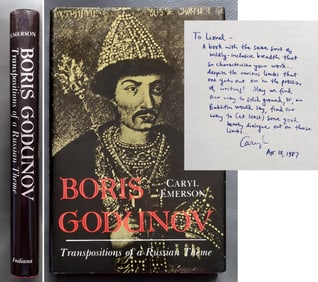 EMERSON
BORIS GODUNOV
Transpositions of a Russian Theme
Indiana
BORIS
CARYL
EMERSON
GODUNOV
Transpositions of a Russian Theme
To Lionel –
A book with the same sort of
wildly-inclusive breadth that
so characterizes your work..
despite the various limbs that
one gets out on in the process
of writing! May we find
our way to solid ground, or, as
Bakhtin would say, find our
way to (at least) some good,
hearty dialogue, out on those
limbs.
Caryl
Apr. 1987